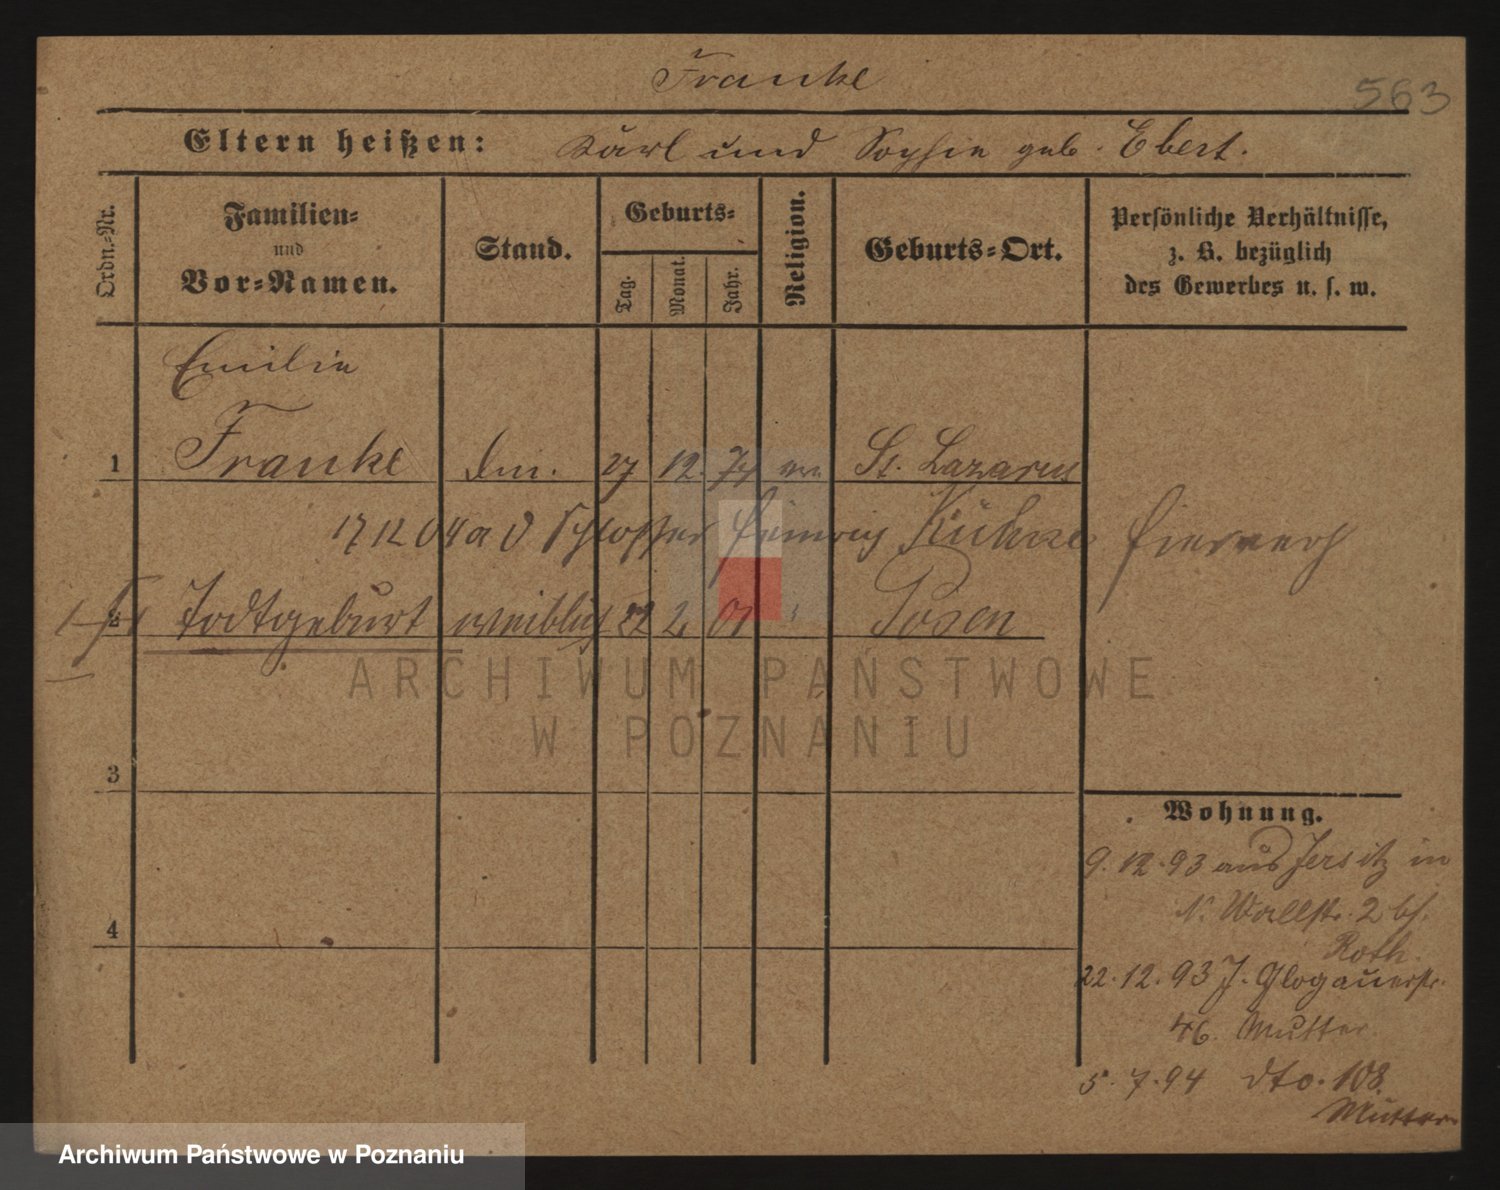 Franke
563
Eltern heißen: Karl und Sophie geb. Ebert.
Ordn.-Nr.
Familien-
und
Vor-Namen.
Stand.
Geburts-
Tag.
Monat.
Jahr.
Religion.
Geburts-Ort.
Persönliche Verhältnisse,
z. B. bezüglich
des Gewerbes u. s. w.
Emilie
1 Franke 27 12. 74 ev St. Lazarus
17 12 04 Schlosser Heinrich Kühne hierher
2 Todtgeburt weiblich 22 2. 01 Posen
ARCHIWUM PAŃSTWOWE
W POZNANIU
3
4
Wohnung.
9. 12. 93 aus Jersitz in
N. Wallstr. 2 bei
Roth.
22. 12. 93 J. Glogauerstr.
46. Mutter
5. 7. 94 dto. 108.
Mutter
Archiwum Państwowe w Poznaniu